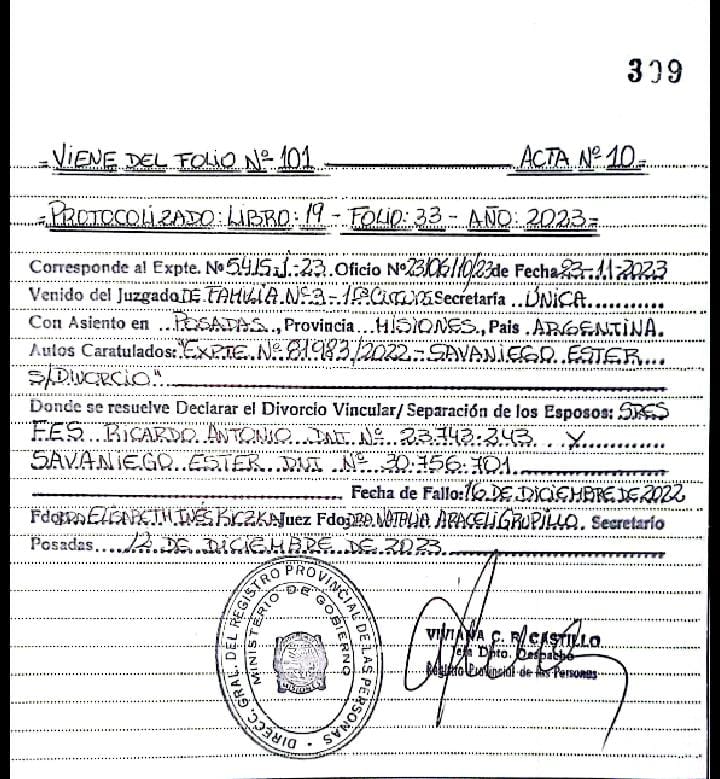 309
= VIENE DEL FOLIO Nº 101 ACTA Nº 10 =
= PROTOCOLIZADO: LIBRO: 19 - FOLIO: 33 - AÑO: 2023 =
Corresponde al Expte. Nº 5415.J.:23. Oficio Nº 23106110/23 de Fecha 23-11-2023
Venido del Juzgado DE FAMILIA Nº3 - 1ª Secretaría ..ÚNICA...........
Con Asiento en ..POSADAS.., Provincia ..MISIONES., Pais .ARGENTINA.
Autos Caratulados: "EXPTE Nº 81983/2022 - SAVANIEGO ESTER...
S/DIVORCIO"
Donde se resuelve Declarar el Divorcio Vincular/ Separación de los Esposos: SRES
F.E.S.. RICARDO ANTONIO.. DNI. Nº. 23.743.243... Y.............
SAVANIEGO..ESTER..DNI..Nº..30.756.701.
Fecha de Fallo: 16 DE DICIEMBRE DE 2022
Fdo: DRA INÉS Juez Fdo: DRA NATALIA ARACELI GRUPILLO. Secretario
Posadas.....12 DE DICIEMBRE DE 2023
DIRECC. GRAL. DEL REGISTRO PROVINCIAL DE LAS PERSONAS
MINISTERIO DE GOBIERNO
VIVIANA C. R. CASTILLO
Jefe Dpto. Despacho
Registro Provincial de las Personas